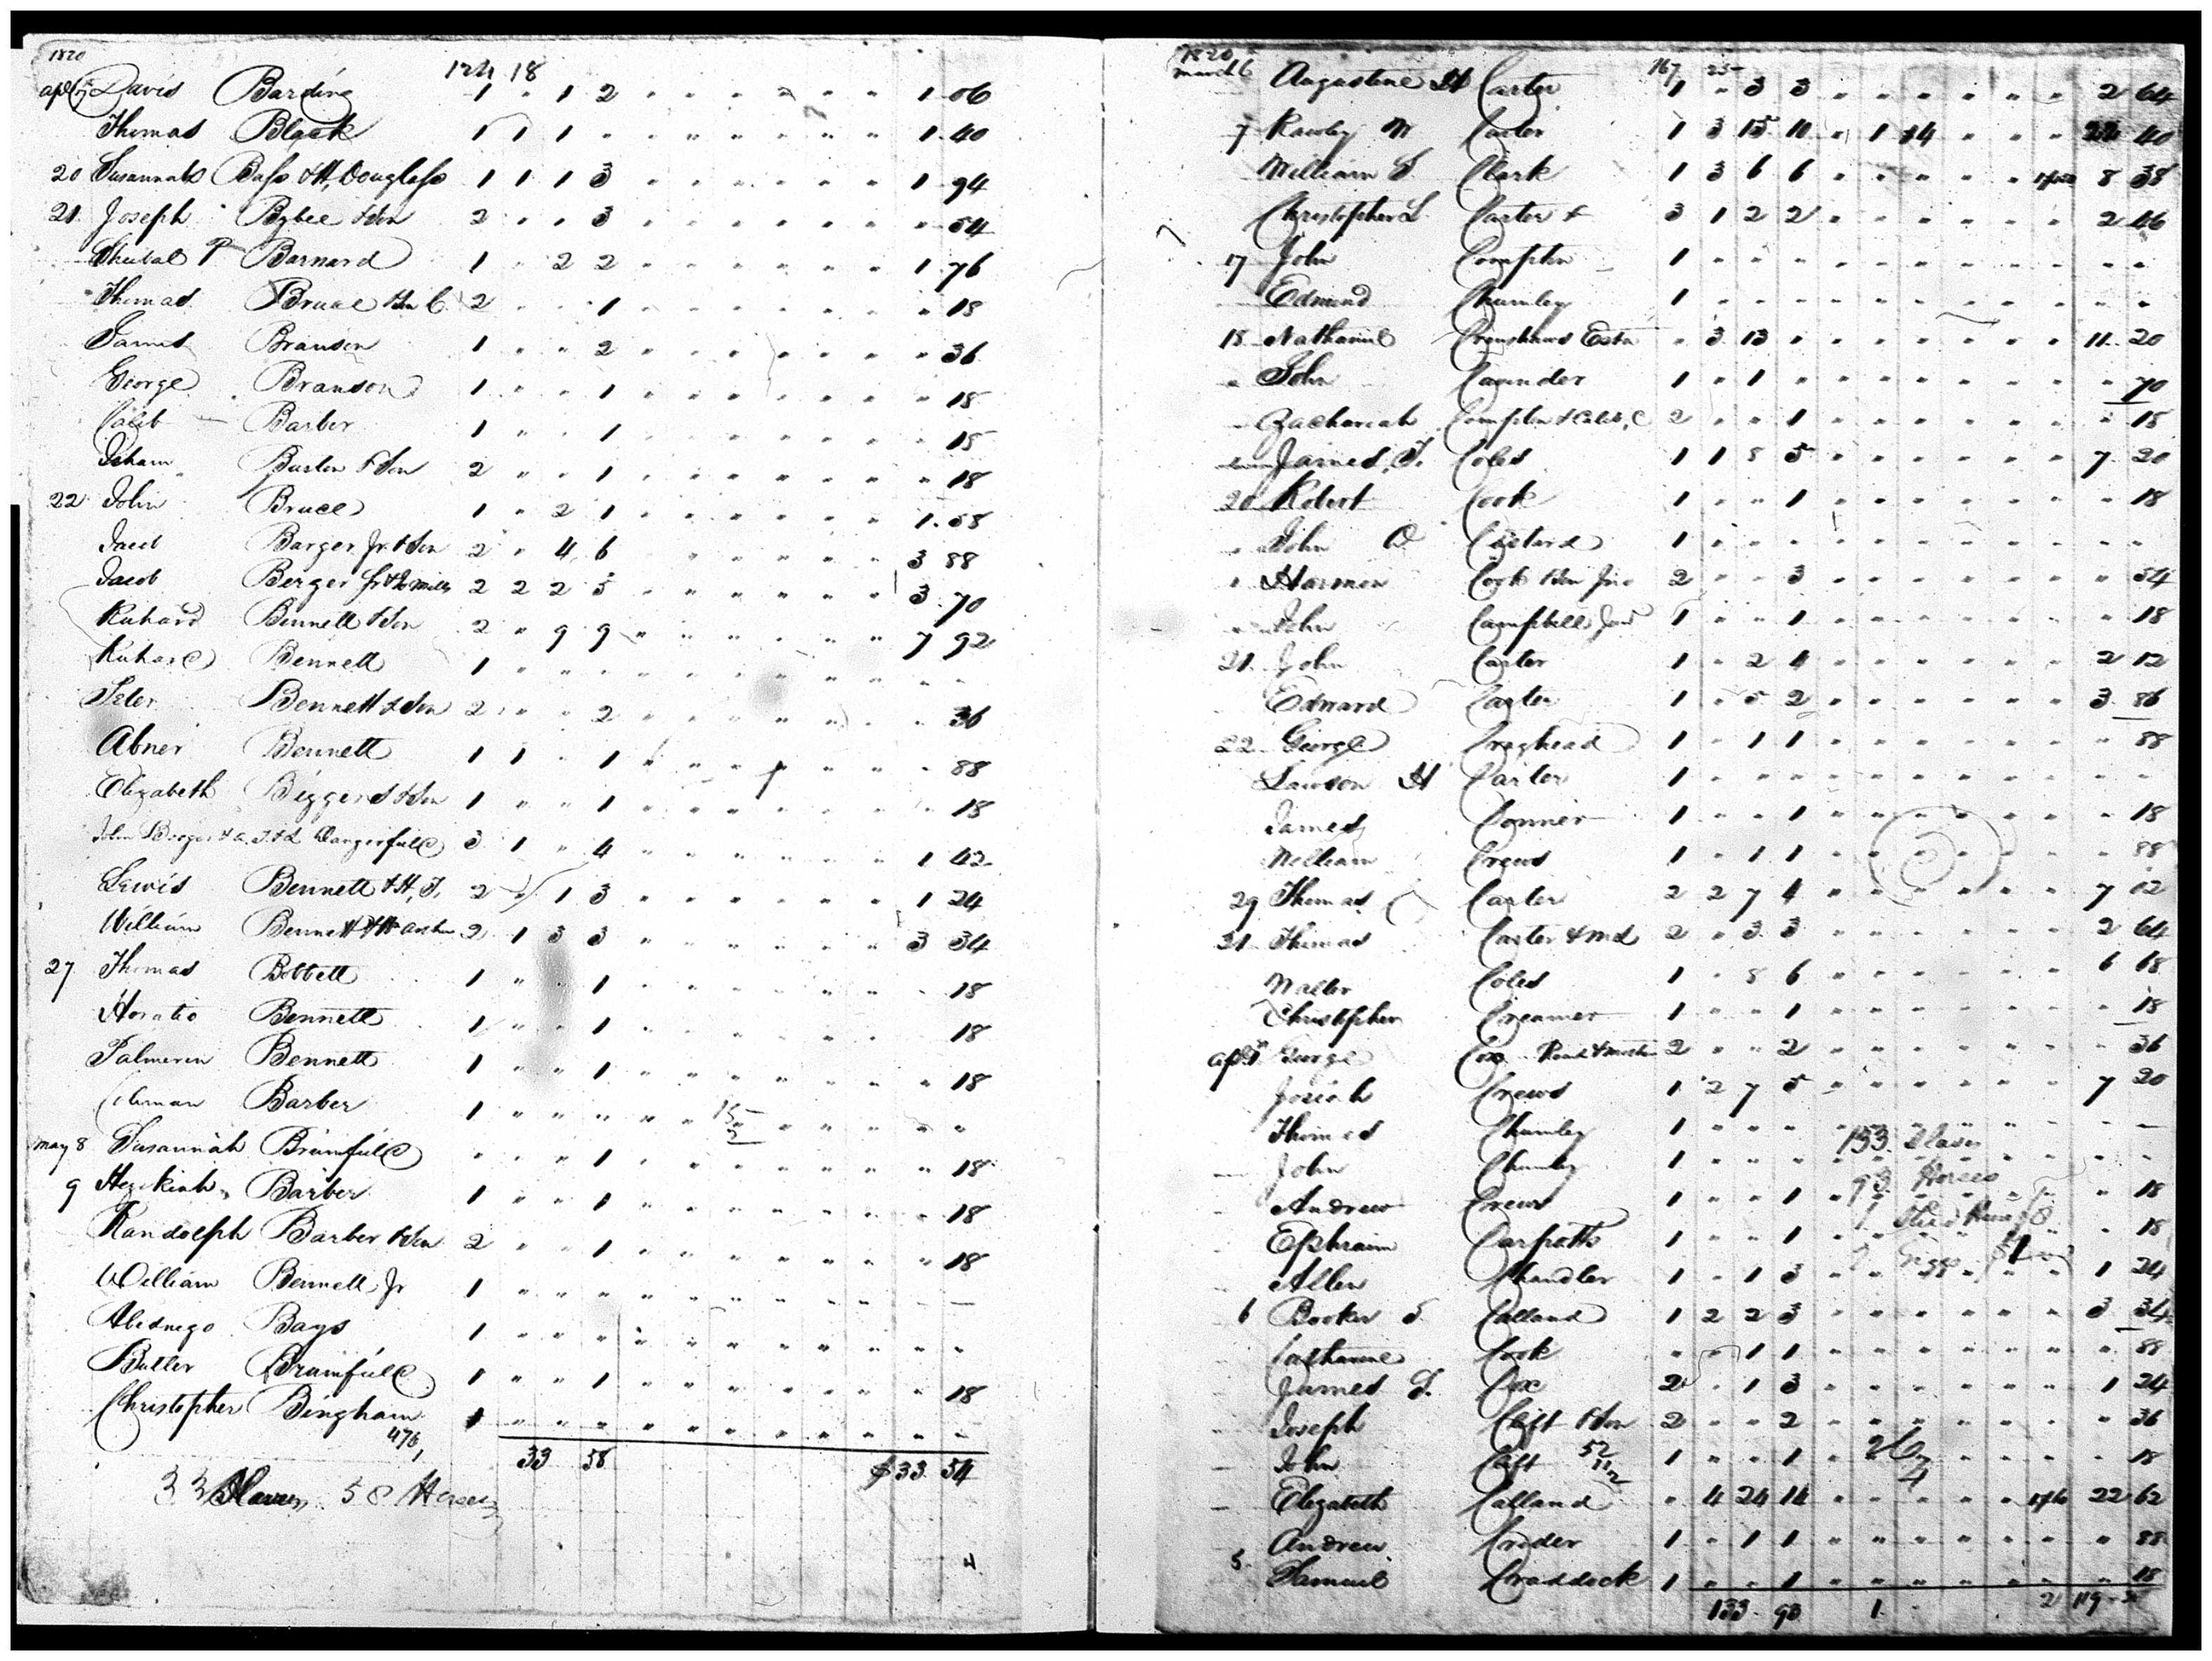 1820
124 18
apl 17 David Barding 1 " 1 2 " " " " " " " 1 06
Thomas Black 1 1 1 " " " " " " " " 1 40
20 Susannah Bass & H, Douglass 1 1 1 3 " " " " " " " 1 94
21 Joseph Bybee & Son 2 " " 3 " " " " " " " " 54
Shubal P Barnard 1 " 2 2 " " " " " " " 1 76
Thomas Bruce Son C 2 " " 1 " " " " " " " " 18
James Branson 1 " " 2 " " " " " " " " 36
George Branson 1 " " 1 " " " " " " " " 18
Caleb Barber 1 " " 1 " " " " " " " " 18
Isham Burton & Son 2 " " 1 " " " " " " " " 18
22 John Bruce 1 " 2 1 " " " " " " " 1 58
Jacob Barger Jr & Son 2 " 4 6 " " " " " " " 3 88
Jacob Berger Sr & Mills 2 2 2 5 " " " " " " " 3 70
Richard Bennett & Son 2 " 9 9 " " " " " " " 7 92
Richard Bennett 1 " " " " " " " " " " " "
Peter Bennett & Son 2 " " 2 " " " " " " " " 36
Abner Bennett 1 1 " 1 " " " " " " " " 88
Elizabeth Biggers & Son 1 " " 1 " " " " " " " " 18
John Berger & Dangerfield 3 1 " 4 " " " " " " " 1 42
Lewis Bennett & H, T, 2 " 1 3 " " " " " " " 1 24
William Bennett & 2 1 3 3 " " " " " " " 3 34
27 Thomas Bobbett 1 " " 1 " " " " " " " " 18
Horatio Bennett 1 " " 1 " " " " " " " " 18
Palmerin Bennett 1 " " 1 " " " " " " " " 18
Coleman Barber 1 " " " " " " " " " " " "
May 8 Susannah Brimfield " " " 1 " " " " " " " " 18
9 Hezekiah Barber 1 " " 1 " " " " " " " " 18
Randolph Barber & Son 2 " " 1 " " " " " " " " 18
William Bennett Jr 1 " " " " " " " " " " " —
Abednego Bays 1 " " " " " " " " " " " "
Butler Bramfield 1 " " 1 " " " " " " " " 18
Christopher Bingham 1 " " " " " " " " " " " "
476
33 58 $33 54
33 Slaves 58 Horses
4
1820
167 25
March 6 Augustine H Carter 1 " 3 3 " " " " " " " 2 64
7 Rawley W Carter 1 3 15 11 " 1 14 " " " " 22 40
William S Clark 1 3 6 6 " " " " " " 8 38
Christopher L Carter & 3 1 2 2 " " " " " " " 2 46
17 John Compton 1 " " " " " " " " " " " "
Edmund Chumley 1 " " " " " " " " " " " "
18 Nathaniel Crenshaws Esta " 3 13 " " " " " " " " 11 20
" John Caunder 1 " 1 " " " " " " " " " 70
Zachariah Compton & Caleb, C 2 " " 1 " " " " " " " " 18
James, T. Coles 1 1 8 5 " " " " " " " 7 20
20 Robert Cook 1 " " 1 " " " " " " " " 18
" John O Custard 1 " " " " " " " " " " " "
" Harmon Cook Son Jno 2 " " 3 " " " " " " " " 54
" John Campbell Junr 1 " " 1 " " " " " " " " 18
21 John Carter 1 " 2 4 " " " " " " " 2 12
Edward Carter 1 " 5 2 " " " " " " " 3 86
22 George Craghead 1 " 1 1 " " " " " " " " 88
Lawson H Carter 1 " " " " " " " " " " " "
James Conner 1 " " 1 " " " " " " " " 18
William Crews 1 " 1 1 " " " " " " " " 88
29 Thomas C Carter 2 2 7 4 " " " " " " " 7 02
31 Thomas Carter & Md 2 " 3 3 " " " " " " " 2 64
Walter Coles 1 " 8 6 " " " " " " " 6 68
Christopher Creamer 1 " " 1 " " " " " " " " 18
apl 1 George Cox 2 " " 2 " " " " " " " " 36
Josiah Crews 1 2 7 5 " " " " " " " 7 20
Thomas Chumley 1 " " " " " " " " " " " —
133 Slaves
John Chumley 1 " " " " " " " " " " " "
93 Horses
Andrew Crews 1 " " 1 " " " " " " " " 18
1 Stud
Ephraim Carpotts 1 " " 1 " " " " " " " " 18
Giggs
Allen Chandler 1 " 1 3 " " " " " " " 1 24
6 Booker S Calland 1 2 2 3 " " " " " " " 3 34
Catharine Cook " " 1 1 " " " " " " " " 88
James S. Cox 2 " 1 3 " " " " " " " 1 24
Joseph Clift & Son 2 " " 2 " " " " " " " " 36
John Clift 1 " " 1 " " " " " " " " 18
Elizabeth Calland " 4 24 14 " " " " " " 22 62
Andrew Crider 1 " 1 1 " " " " " " " " 88
5 Samuel Craddock 1 " " 1 " " " " " " " " 18
133 93 1 2 119